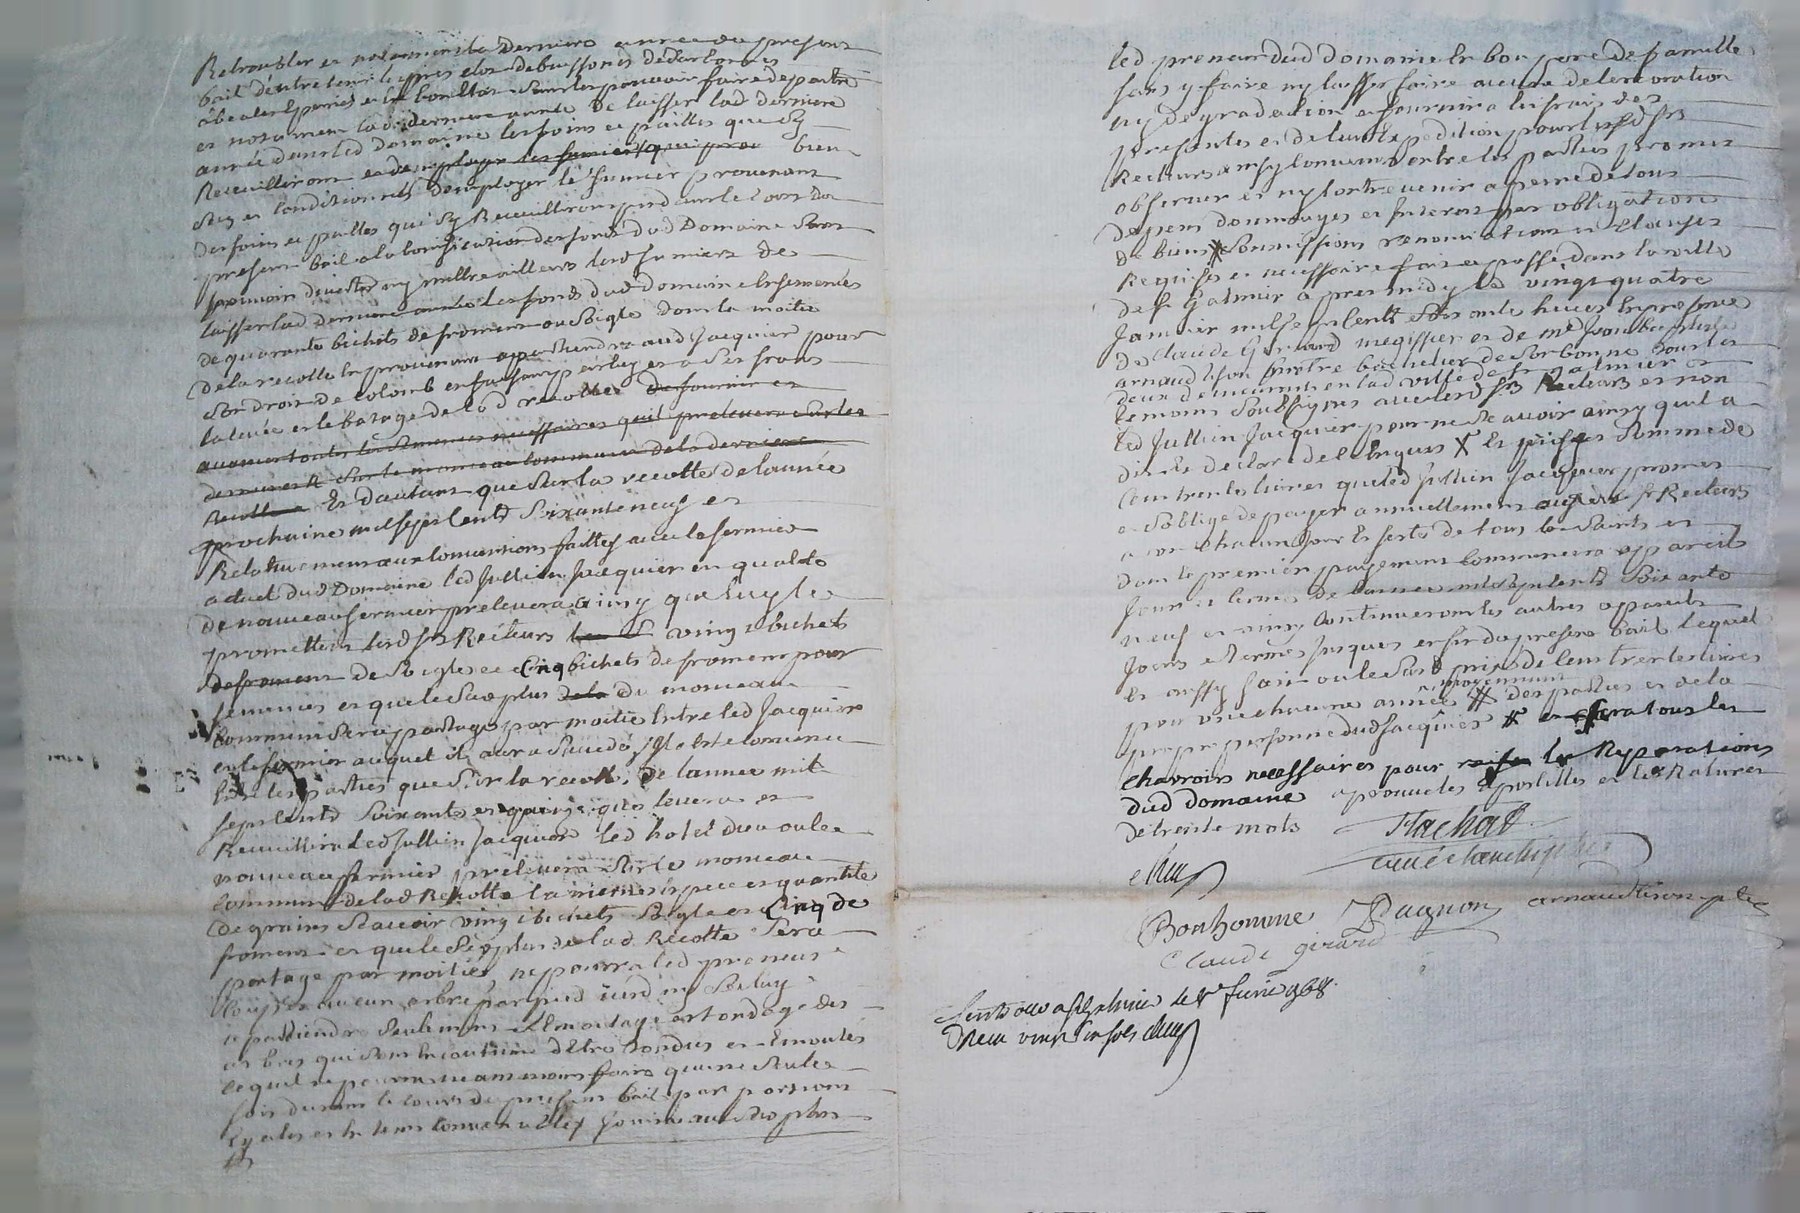 Retroubler et notament la derniere année du present
bail d'entretenir les prés clos de buissons
et notament lad. derniere année de laisser lad derniere
année dans led domaine les foins et pailles qui sy
Recueilliront et demployer les fumiers qui prov bien
et conditionnés demployer le fumier provenant
des foins et pailles qui sy Recueilliront pendant le cours du
present bail a la bonification des fonds dud Domaine sans
pouvoir divertir ny mettre ailleurs lesd fumiers de
laisser lad derniere année les fonds dud domaine ensemencés
de quarante bichets de froment ou soigle dont la moitié
de la recolte en provenant apartiendra aud Jacquier pour
son droit de colomb en faisant par luy et a ses frais
la levée et le batage de lad recolte de fournir et
avancer toutes les semences necessaires quil prelevera sur les
derniere sur le monceau commun de la derniere
Recolte Et d'autant que sur la recolte de l'année
prochaine mil sept cents soixante neuf et
Relativement aux conventions faittes avec le fermier
actuel dud Domaine led Jullien Jacquier en qualité
de nouveau fermier prelevera ainsy que luy
promettent lesd srs Recteurs vingt bichets
de froment de soigle et cinq bichets de froment pour
semences et que le surplus de la du monceau
commun sera partagé par moitié entre led Jacquier
et le fermier auquel il aura succédé, Il est convenu
entre les parties que sur la recolte de l'année mil
sept cents soixante et quinze que levera et
Recueillira led Jullien Jacquier led hotel dieu ou le
nouveau fermier prelevera sur le monceau
commun de lad Recolte la meme espece et quantité
de grains scavoir vingt bichets soigle et cinq de
froment et que le surplus de lad Recolte sera
partagé par moitié, ne pourra led preneur
couper aucun arbre par pied
apartiendra seulement l'emontage et tondage des
arbres qui sont en coutume d'etre tondus et emontés
lequel ne pourra neanmoins faire qu'une seule
fois durant le cours du present bail par portions
egales et en tems convenables jouira au surplus
led preneur dud domaine en bon pere de famille
sans y faire ny laisser faire aucune deterioration
ny degradation et fournira les frais des
presentes et de leur expedition pour lesd srs
Recteurs ainsy convenu entre les parties promis
observer et ny contrevenir a peine de tous
depens dommages et interets par obligation
de biens # soumissions renonciations et clauses
Requises et necessaires fait et passé dans la ville
de St Galmier apres midy le vingt quatre
Janvier mil sept cents soixante huict en presence
de Claude Girard megissier et de Me Jean baptiste
arnaud tison pretre bachelier de Sorbonne tous les
deux demeurants en lad ville de St galmier
temoins soussignés avec lesd srs Recteurs et non
led Jullien Jacquier pour ne scavoir ainsy quil a
dit et declaré de ce enquis X Et pris somme de
cent trente livres que led Jullien Jacquier promet
et soblige de payer annuellement auxd srs Recteurs
a un chacun jour et feste de tous les Saints et
dont le premier payement commencera a pareil
jour et terme de l'année mil sept cents soixante
neuf et ainsy continueront les autres a pareils
jours et termes jusques en fin du present bail lequel
est aussy fait outre le susd prix de cent trente livres
pour une chacune année moyennant # des parties et de la
propre personne dud Jacquier # et fera tous les
charrois necessaires pour les Reparations
dud domaine aprouvé les apostilles et les Ratures
de trente mots Flachat
Bonhomme Pagnon arnaud tison ptre
Claude girard
Controllé a St galmier le 8e fevrier 1768.
Reçu vingt six sols